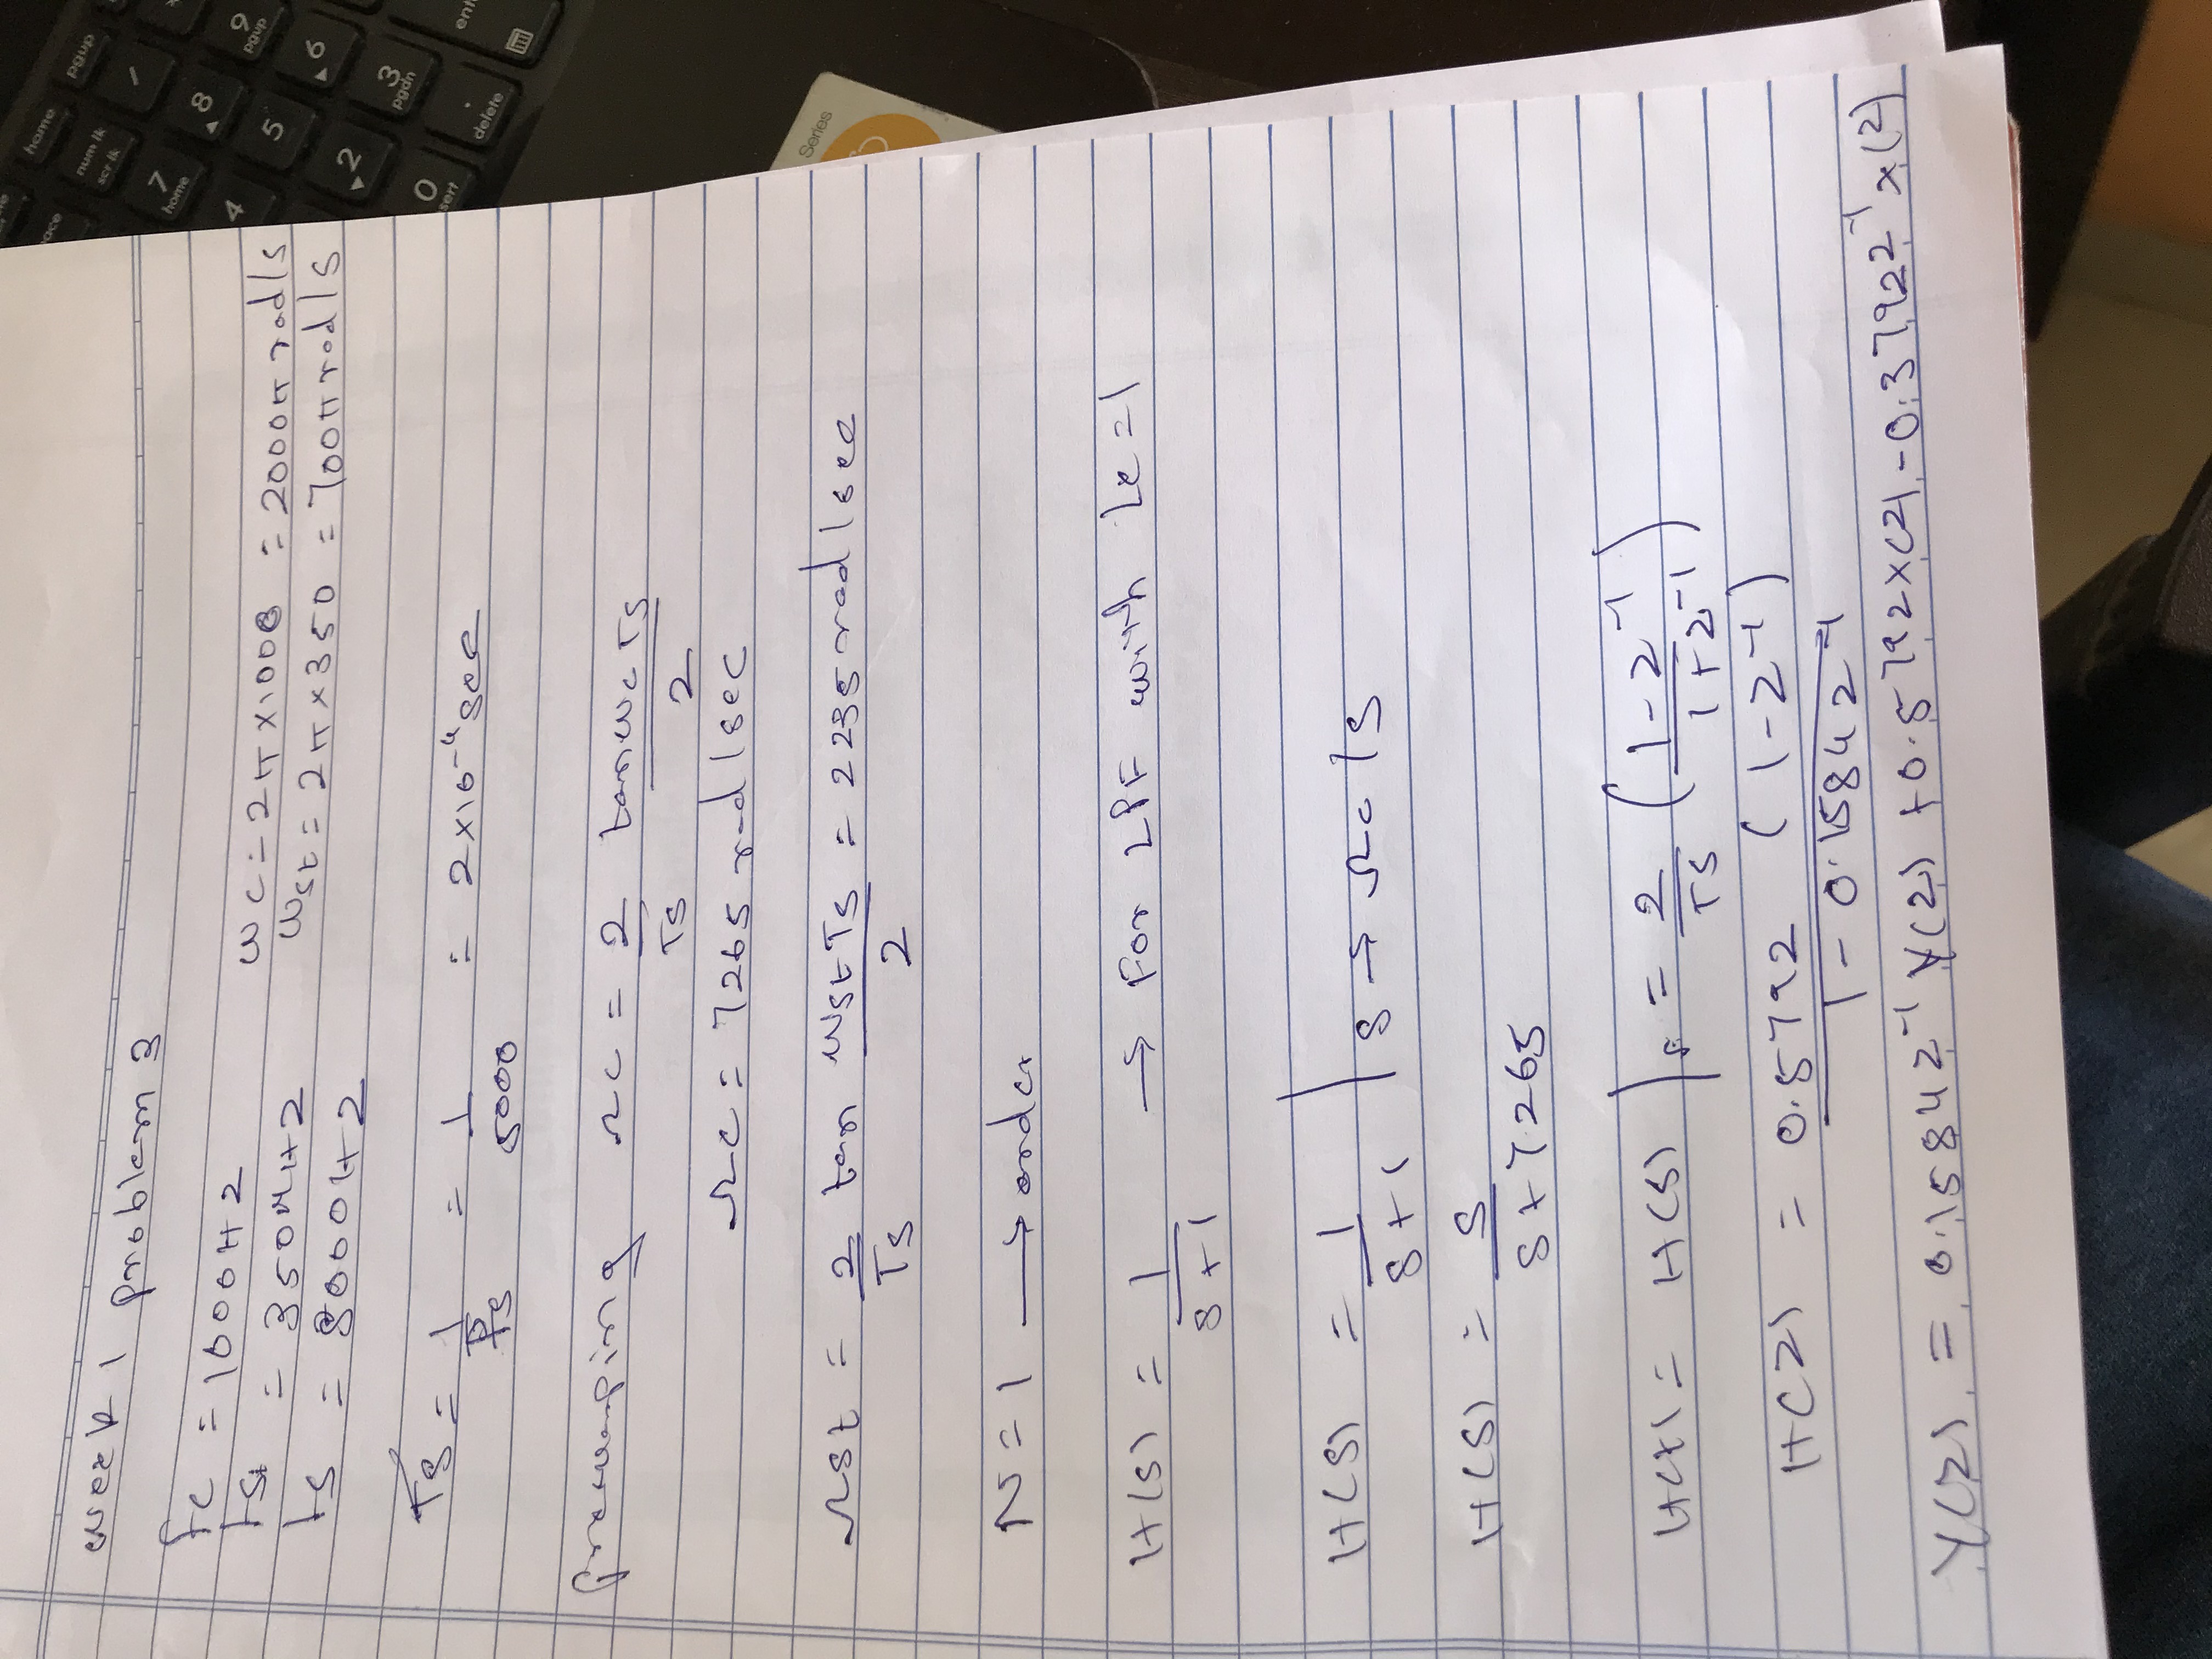 week 1 problem 3
fc = 1000Hz
fst = 350Hz
fs = 5000Hz
ωc = 2π×1000 = 2000π rad/s
ωst = 2π×350 = 700π rad/s
Ts = 1/Fs = 1/5000 = 2×10⁻⁴ sec
prewarping Ωc = 2/Ts tan ωcTs/2
Ωc = 7265 rad/sec
Ωst = 2/Ts tan ωstTs/2 = 2235 rad/sec
N = 1 → order
H(s) = 1/(s+1) → For LPF with Ωc = 1
H(s) = 1/(s+1) | s → Ωc/s
H(s) = s/(s+7265)
H(z) = H(s) | s = 2/Ts ((1-z⁻¹)/(1+z⁻¹))
H(z) = 0.5792 (1-z⁻¹)/(1-0.1584z⁻¹)
Y(z) = 0.1584z⁻¹ Y(z) + 0.5792X(z) - 0.3792z⁻¹ X(z)
home
pgup
num lk
scr lk
/
7
home
8
9
pgup
4
5
6
2
3
pgdn
0
.
delete
Series